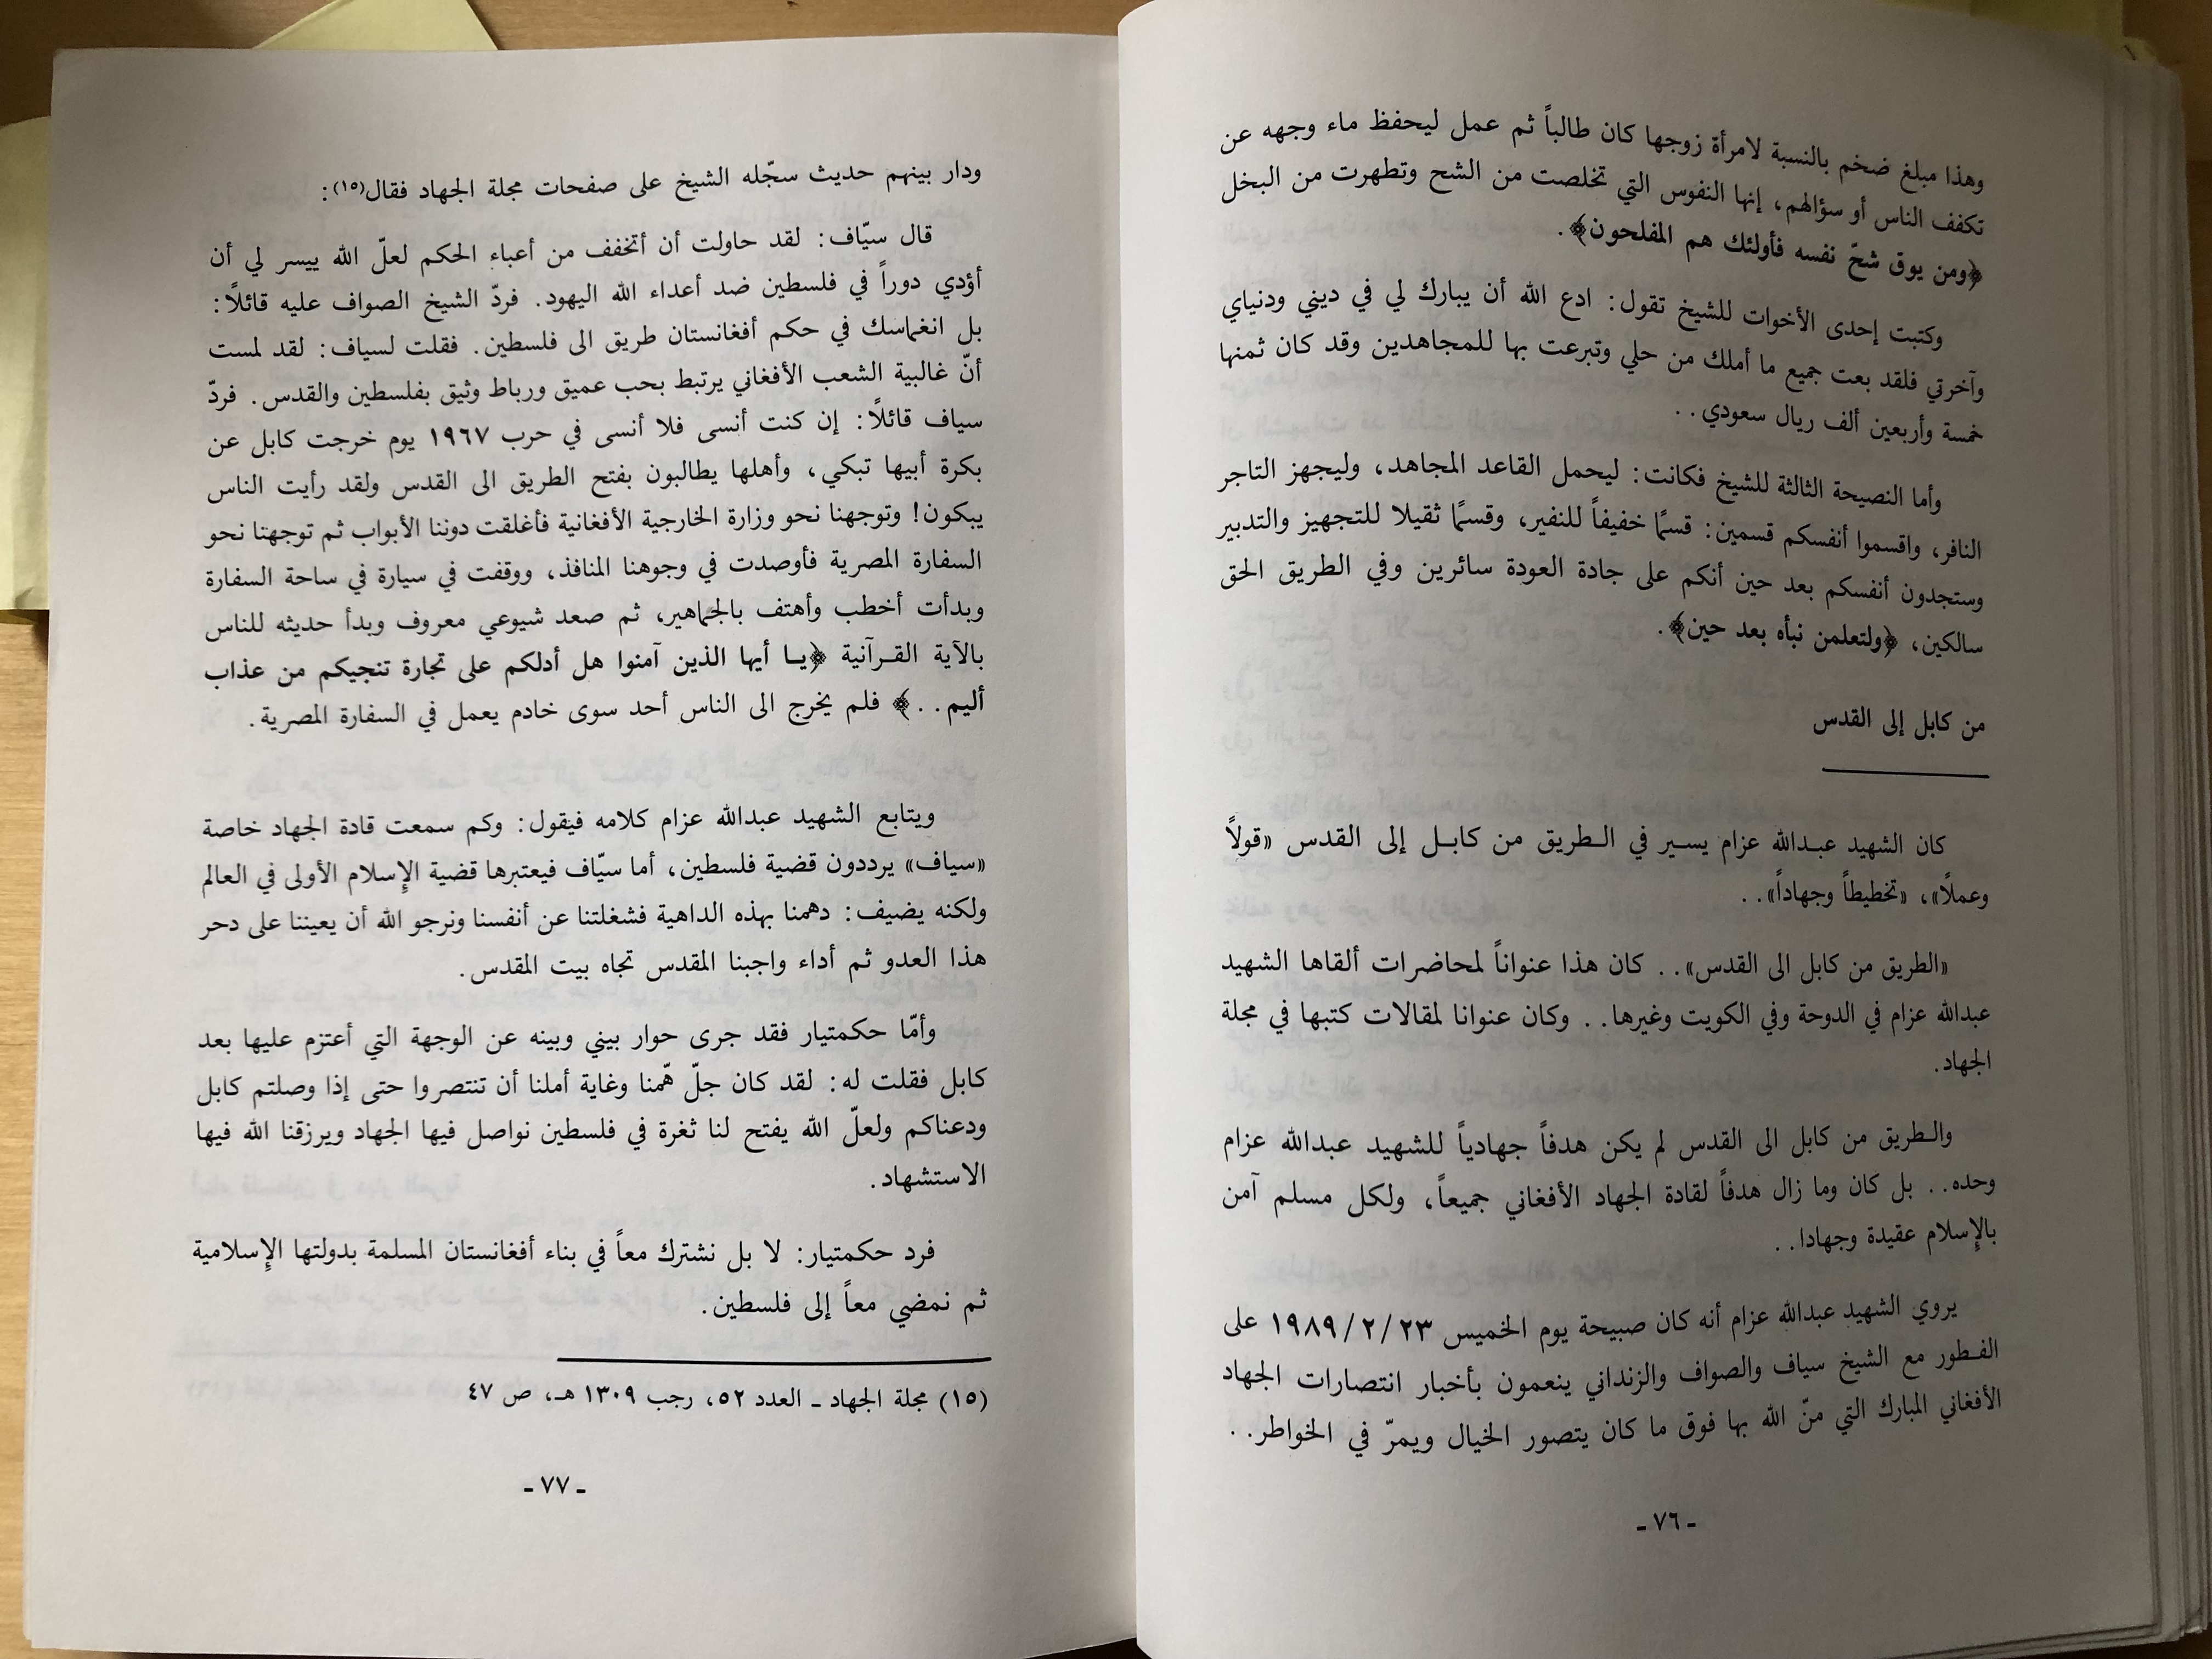 وهذا مبلغ ضخم بالنسبة لامرأة زوجها كان طالباً ثم عمل ليحفظ ماء وجهه عن
تكفف الناس أو سؤالهم، إنها النفوس التي تخلصت من الشح وتطهرت من البخل
﴿ومن يوق شحّ نفسه فأولئك هم المفلحون﴾.
وكتبت إحدى الأخوات للشيخ تقول: ادع الله أن يبارك لي في ديني ودنياي
وآخرتي فلقد بعت جميع ما أملك من حلي وتبرعت بها للمجاهدين وقد كان ثمنها
خمسة وأربعين ألف ريال سعودي..
وأما النصيحة الثالثة للشيخ فكانت: ليحمل القاعد المجاهد، وليجهز التاجر
النافر، واقسموا أنفسكم قسمين: قسمًا خفيفاً للنفير، وقسمًا ثقيلا للتجهيز والتدبير
وستجدون أنفسكم بعد حين أنكم على جادة العودة سائرين وفي الطريق الحق
سالكين، ﴿ولتعلمن نبأه بعد حين﴾.
من كابل إلى القدس
كان الشهيد عبدالله عزام يسير في الطريق من كابل إلى القدس «قولاً
وعملًا»، «تخطيطاً وجهاداً»..
«الطريق من كابل الى القدس».. كان هذا عنواناً لمحاضرات ألقاها الشهيد
عبدالله عزام في الدوحة وفي الكويت وغيرها.. وكان عنوانا لمقالات كتبها في مجلة
الجهاد.
والطريق من كابل الى القدس لم يكن هدفاً جهادياً للشهيد عبدالله عزام
وحده.. بل كان وما زال هدفاً لقادة الجهاد الأفغاني جميعاً، ولكل مسلم آمن
بالإسلام عقيدة وجهادا..
يروي الشهيد عبدالله عزام أنه كان صبيحة يوم الخميس ٢٣/٢/١٩٨٩ على
الفطور مع الشيخ سياف والصواف والزنداني ينعمون بأخبار انتصارات الجهاد
الأفغاني المبارك التي منّ الله بها فوق ما كان يتصور الخيال ويمرّ في الخواطر..
- ٧٦ -
ودار بينهم حديث سجّله الشيخ على صفحات مجلة الجهاد فقال(١٥):
قال سيّاف: لقد حاولت أن أتخفف من أعباء الحكم لعلّ الله ييسر لي أن
أؤدي دوراً في فلسطين ضد أعداء الله اليهود. فردّ الشيخ الصواف عليه قائلًا:
بل انغماسك في حكم أفغانستان طريق الى فلسطين. فقلت لسياف: لقد لمست
أنّ غالبية الشعب الأفغاني يرتبط بحب عميق ورباط وثيق بفلسطين والقدس. فردّ
سياف قائلًا: إن كنت أنسى فلا أنسى في حرب ١٩٦٧ يوم خرجت كابل عن
بكرة أبيها تبكي، وأهلها يطالبون بفتح الطريق الى القدس ولقد رأيت الناس
يبكون! وتوجهنا نحو وزارة الخارجية الأفغانية فأغلقت دوننا الأبواب ثم توجهنا نحو
السفارة المصرية فأوصدت في وجوهنا المنافذ، ووقفت في سيارة في ساحة السفارة
وبدأت أخطب وأهتف بالجماهير، ثم صعد شيوعي معروف وبدأ حديثه للناس
بالآية القرآنية ﴿يا أيها الذين آمنوا هل أدلكم على تجارة تنجيكم من عذاب
أليم..﴾ فلم يخرج الى الناس أحد سوى خادم يعمل في السفارة المصرية.
ويتابع الشهيد عبدالله عزام كلامه فيقول: وكم سمعت قادة الجهاد خاصة
«سياف» يرددون قضية فلسطين، أما سيّاف فيعتبرها قضية الإسلام الأولى في العالم
ولكنه يضيف: دهمنا بهذه الداهية فشغلتنا عن أنفسنا ونرجو الله أن يعيننا على دحر
هذا العدو ثم أداء واجبنا المقدس تجاه بيت المقدس.
وأمّا حكمتيار فقد جرى حوار بيني وبينه عن الوجهة التي أعتزم عليها بعد
كابل فقلت له: لقد كان جلّ همّنا وغاية أملنا أن تنتصروا حتى إذا وصلتم كابل
ودعناكم ولعلّ الله يفتح لنا ثغرة في فلسطين نواصل فيها الجهاد ويرزقنا الله فيها
الاستشهاد.
فرد حكمتيار: لا بل نشترك معاً في بناء أفغانستان المسلمة بدولتها الإسلامية
ثم نمضي معاً إلى فلسطين.
(١٥) مجلة الجهاد ـ العدد ٥٢، رجب ١٣٠٩ هـ، ص ٤٧
- ٧٧ -